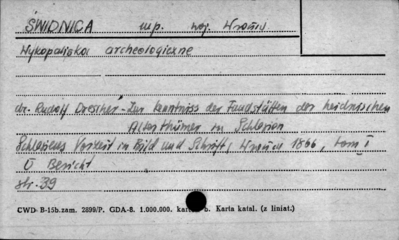 ŚWIDNICA mp. woj. Wrocław
Wykopaliska archeologiczne
dr. Rudolf Drescher - Zur Kenntniss der Fundstätten der heidnischen
Alterthümer in Schlesien
Schlesiens Vorzeit in Bild und Schrift, Wrocław 1866, tom I
V Bericht
str. 39
CWD B-15b. zam. 2899/P. GDA-8. 1.000.000. kart. b. Karta katal. (z liniat.)